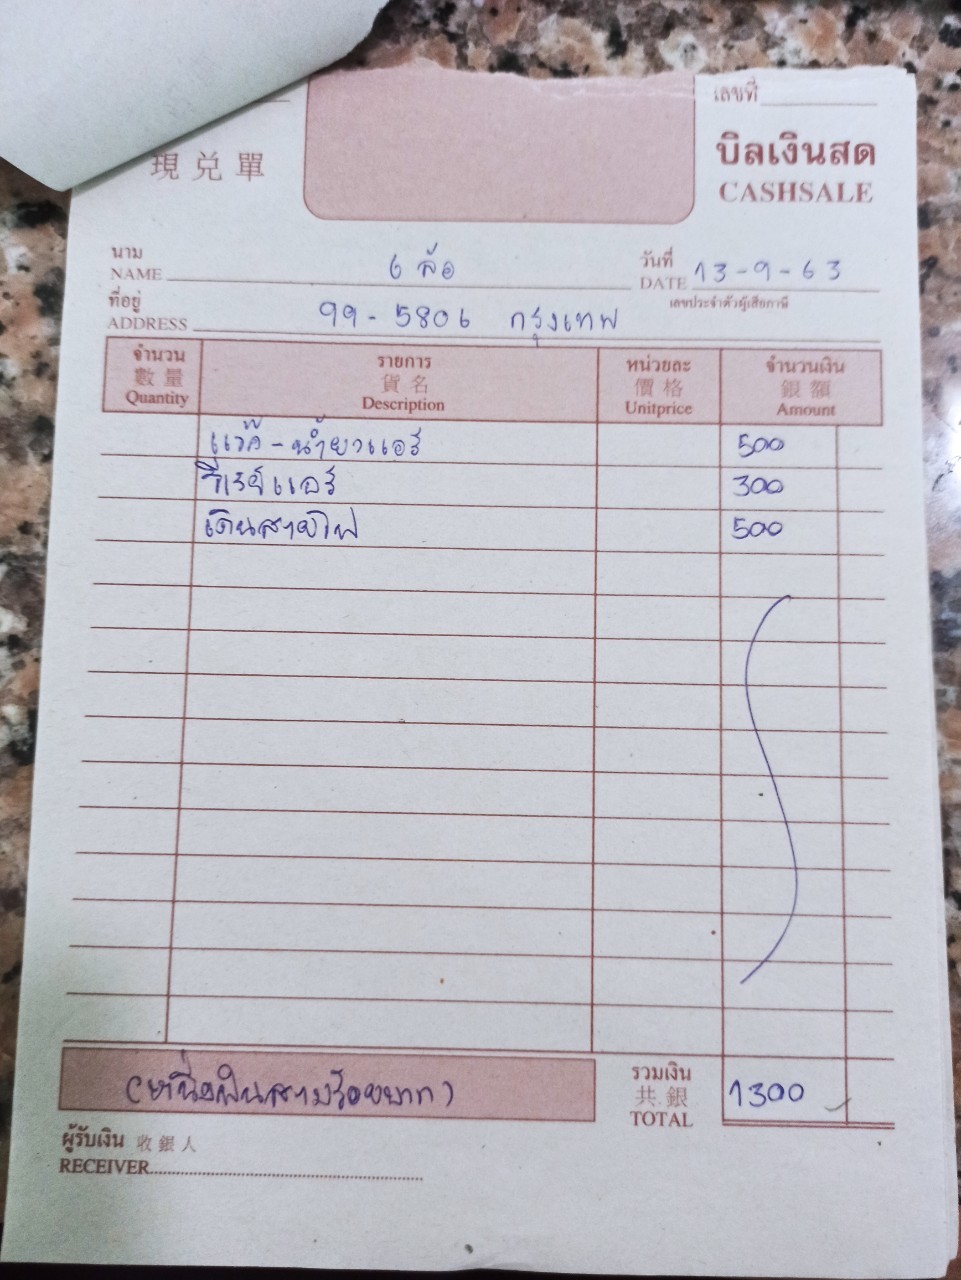 เลขที่
現兌單 บิลเงินสด
CASHSALE
นาม
NAME 6 ล้อ วันที่
DATE 13-9-63
ที่อยู่ เลขประจำตัวผู้เสียภาษี
ADDRESS 99-5806 กรุงเทพ
จำนวน รายการ หน่วยละ จำนวนเงิน
數量 貨名 價格 銀額
Quantity Description Unitprice Amount
แว๊ค-น้ำยาแอร์ 500
รีเรย์แอร์ 300
เดินสายไฟ 500
(หนึ่งพันสามร้อยบาท) รวมเงิน
共銀 1300
TOTAL
ผู้รับเงิน 收銀人
RECEIVER